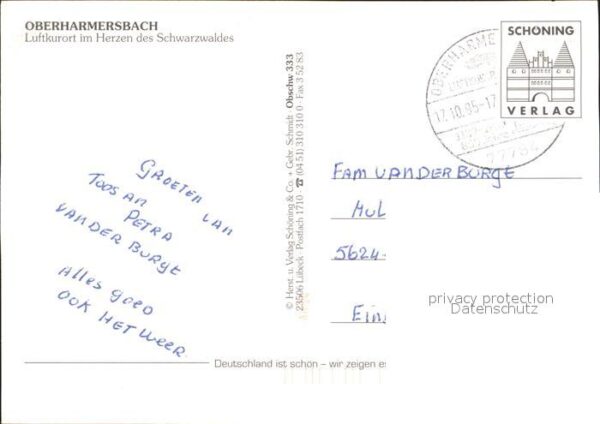 OBERHARMERSBACH
Luftkurort im Herzen des Schwarzwaldes
GROETEN VAN
TOOS AN
PETRA
VAN DER BURGT
Alles goed
OOK HET WEER.
© Herst. u. Verlag Schöning & Co. + Gebr. Schmidt Obschw 333
23506 Lübeck · Postfach 1710 · ☎ (04 51) 310 310 0 · Fax 3 52 83
SCHÖNING
VERLAG
OBERHARME
17.10.95-17
77784
FAM VAN DER BURGT
HUL
5624-
EIN
privacy protection
Datenschutz
Deutschland ist schön – wir zeigen es